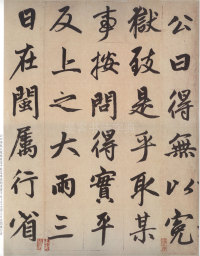 公曰得無以冤
獄致是乎取某
事按問得實平
反上之大雨三
日在閩属行省